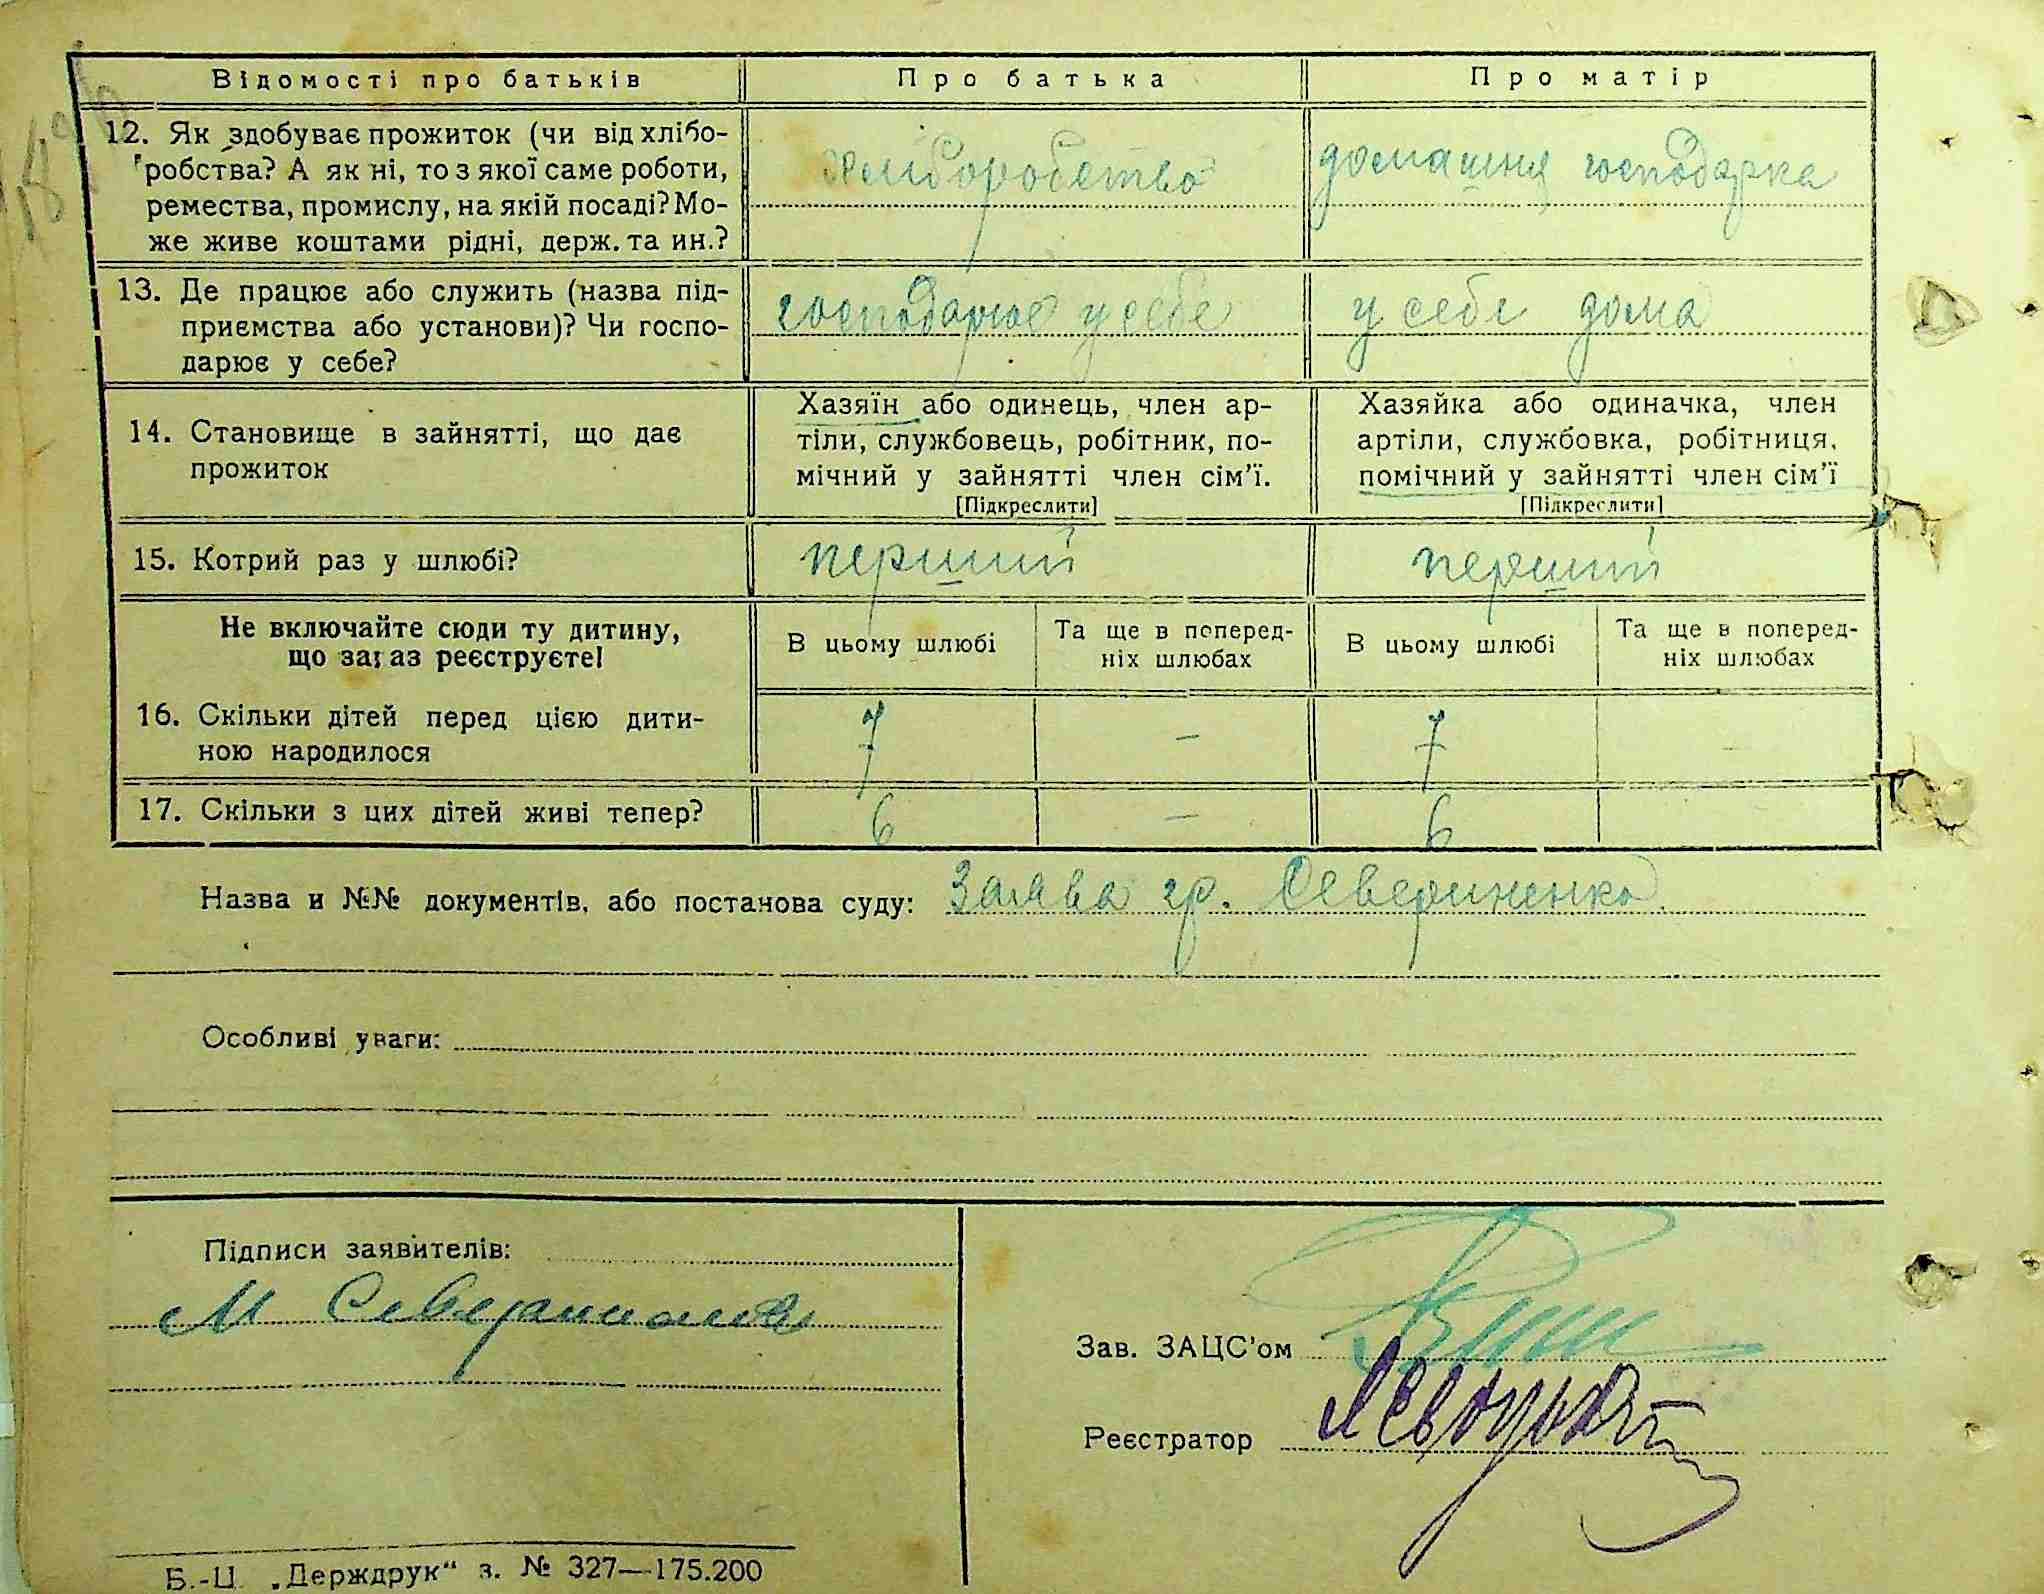 Відомості про батьків Про батька Про матір
12. Як здобуває прожиток (чи від хлібо-
робства? А як ні, то з якої саме роботи,
ремества, промислу, на якій посаді? Мо-
же живе коштами рідні, держ. та ин.?
хліборобство домашня господарка
13. Де працює або служить (назва під-
приємства або установи)? Чи госпо-
дарює у себе?
господарює у себе у себе дома
14. Становище в зайнятті, що дає
прожиток
Хазяїн або одинець, член ар-
тіли, службовець, робітник, по-
мічний у зайнятті член сім'ї.
[Підкреслити]
Хазяйка або одиначка, член
артіли, службовка, робітниця,
помічний у зайнятті член сім'ї
[Підкреслити]
15. Котрий раз у шлюбі? перший перший
Не включайте сюди ту дитину,
що зараз реєструєте!
В цьому шлюбі Та ще в поперед-
ніх шлюбах
В цьому шлюбі Та ще в поперед-
ніх шлюбах
16. Скільки дітей перед цією дити-
ною народилося
7 – 7 –
17. Скільки з цих дітей живі тепер? 6 – 6
Назва и №№ документів, або постанова суду: Заява гр. Севериненко
Особливі уваги:
Підписи заявителів:
М
Зав. ЗАЦС'ом
Реєстратор
Б.-Ц. „Держдрук" з. № 327—175.200